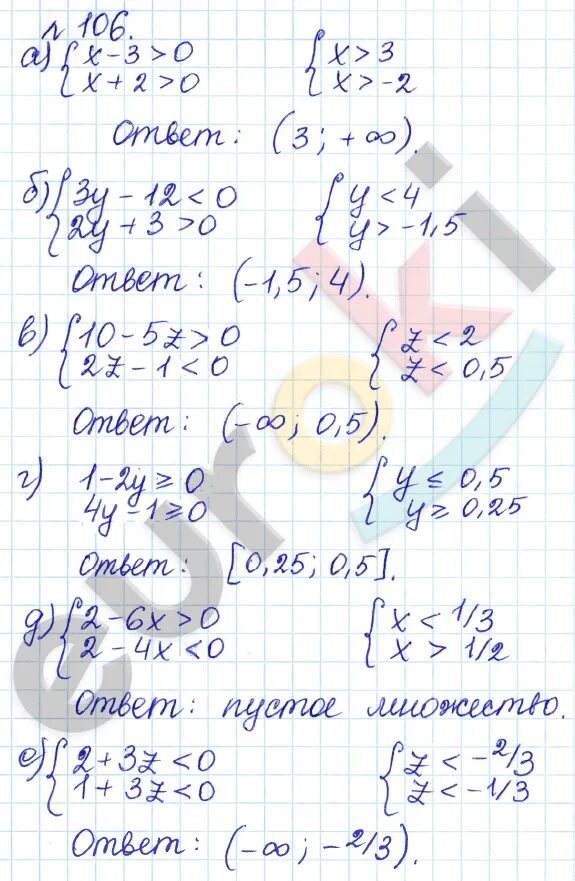 № 106.
а) { x - 3 > 0 { x > 3
x + 2 > 0 x > -2
Ответ: (3; +∞).
б) { 3y - 12 < 0 { y < 4
2y + 3 > 0 y > -1,5
Ответ: (-1,5; 4).
в) { 10 - 5z > 0 { z < 2
2z - 1 < 0 z < 0,5
Ответ: (-∞; 0,5).
г) 1 - 2y ≥ 0 { y ≤ 0,5
4y - 1 ≥ 0 y ≥ 0,25
Ответ: [0,25; 0,5].
д) { 2 - 6x > 0 { x < 1/3
2 - 4x < 0 x > 1/2
Ответ: пустое множество.
е) { 2 + 3z < 0 { z < -2/3
1 + 3z < 0 z < -1/3
Ответ: (-∞; -2/3).
euroki